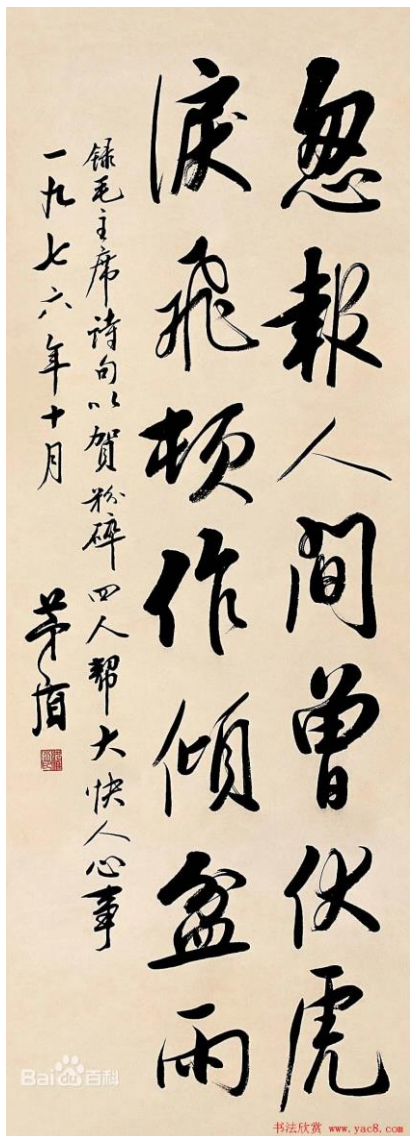 忽報人間曾伏虎
淚飛頓作傾盆雨
録毛主席詩句以賀粉碎四人幫大快人心事
一九七六年十月
茅盾
Bai百科
书法欣赏 www.yac8.com